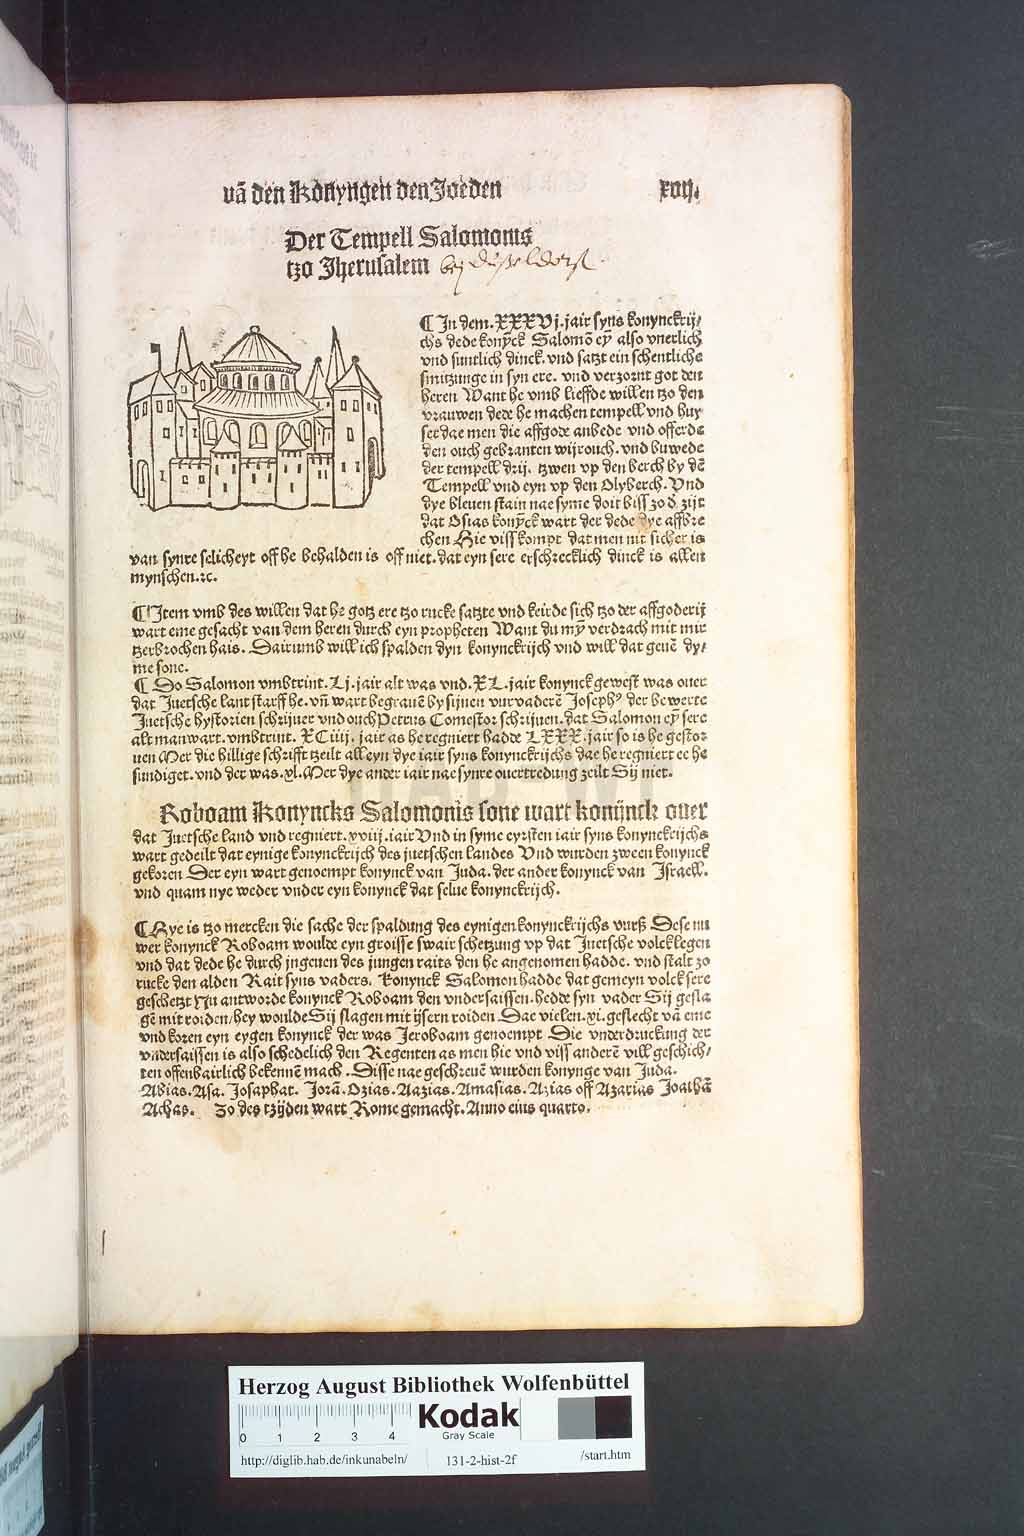 vā den Konyngen den Joeden xvij.
Der Tempell Salomonis
tzo Jherusalem bej düsseldorf
¶ In dem. XXXVj. jair syns konynckrij/
chs dede konyck Salomō eȳ also vnerlich
vnd suntlich dinck. vnd satzt ein schentliche
smitzunge in syn ere. vnd verzornt got den
heren Want he vmb lieffde willen tzo den
vrauwen dede he machen tempell vnd huy
ser dae men die affgode anbede vnd offerde
den ouch gebranten wijrouch. vnd buwede
der tempell drij. tzwen vp den berch by dē
Tempell vnd eyn vp den Olyberch. Vnd
dye bleuen stain nae syme doit biss zo d zijt
dat Osias konyck wart der dede dye affbre
chen Hie viss kompt dat men nit sicher is
van synre selicheyt off he behalden is off niet. dat eyn sere erschrecklich dinck is allen
mynschen.⁊c.
¶ Item vmb des willen dat he gotz ere tzo rucke satzte vnd keirde sich tzo der affgoderij
wart eme gesacht van dem heren durch eyn propheten Want du mȳ verdrach mit mir
tzerbrochen hais. Dairumb will ich spalden dyn konynckrijch vnd will dat geuē dy/
me sone.
¶ Do Salomon vmbtrint. Lj. jair alt was vnd. XL. jair konynck gewest was ouer
dat Juetsche lant starff he. vñ wart begrauē by sijnen vurvaderē Josephꝰ der bewerte
Juetsche hystorien schrijuer vnd ouch Petrus Comestor schrijuen. dat Salomon eȳ sere
alt man wart. vmbtrint. XCiiij. jair as he regniert hadde LXXX. jair so is he gestor
uen Mer die hillige schrifft tzeilt alleyn dye iair syns konynckrijchs dae he regniert ee he
sundiget. vnd der was. xl. Mer dye ander iair nae synre ouertredung zeilt Sij niet.
Roboam Konyncks Salomonis sone wart konijnck ouer
dat Juetsche land vnd regniert. xviij. iair Vnd in syme eyrsten iair syns konynckrijchs
wart gedeilt dat eynige konynckrijch des juetschen landes Vnd wurden zween konynck
gekoren Der eyn wart genoempt konynck van Juda. der ander konynck van Israell.
vnd quam nye weder vnder eyn konynck dat selue konynckrijch.
¶ Hye is tzo mercken die sache der spaldung des eynigen konynckrijchs vurß Dese nu
wer konynck Roboam woulde eyn groisse swair schetzung vp dat Juetsche volck legen
vnd dat dede he durch jngeuen des jungen raits den he angenomen hadde. vnd stalt zo
rucke den alden Rait syns vaders. Konynck Salomon hadde dat gemeyn volck sere
geschetzt Nu antworde konynck Roboam den vndersaissen. hedde syn vader Sij gesla
gē mit roiden/hey woulde Sij slagen mit ijsern roiden Dae vielen. xi. geslecht vā eme
vnd koren eyn eygen konynck der was Jeroboam genoempt Die vnderdruckung der
vndersaissen is also schedelich den Regenten as men hie vnd viss anderē vill geschich/
ten offenbairlich bekennē mach. Disse nae geschreuē wurden konynge van Juda.
Abias. Asa. Josaphat. Jorā. Ozias. Aazias. Amasias. Azias off Azarias Joathā
Achas. Zo des tzijden wart Rome gemacht. Anno eius quarto.
Herzog August Bibliothek Wolfenbüttel
0 1 2 3 4
Kodak
Gray Scale
http://diglib.hab.de/inkunabeln/ 131-2-hist-2f /start.htm